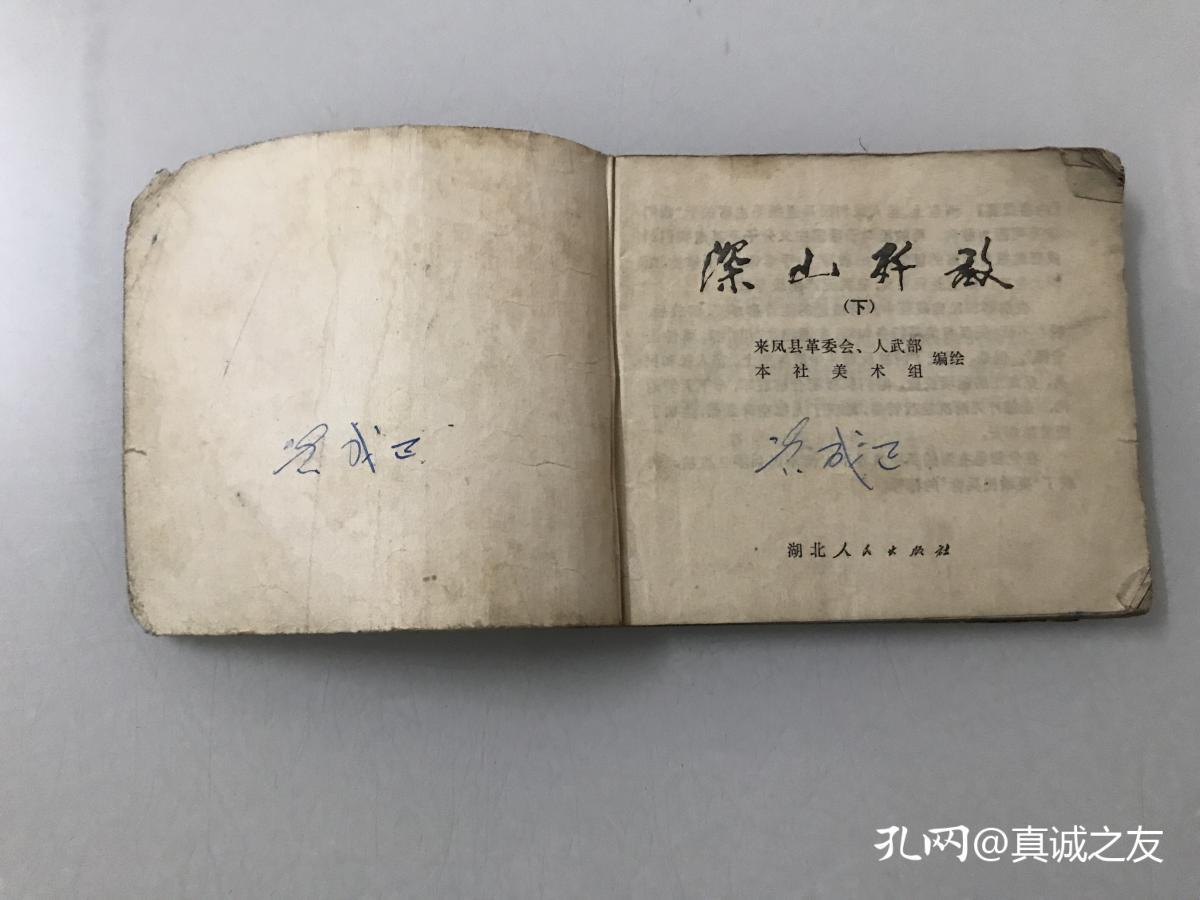 深山歼敌
（下）
来凤县革委会、人武部
本社美术组
编绘
成正
成正
湖北人民出版社
孔网@真诚之友